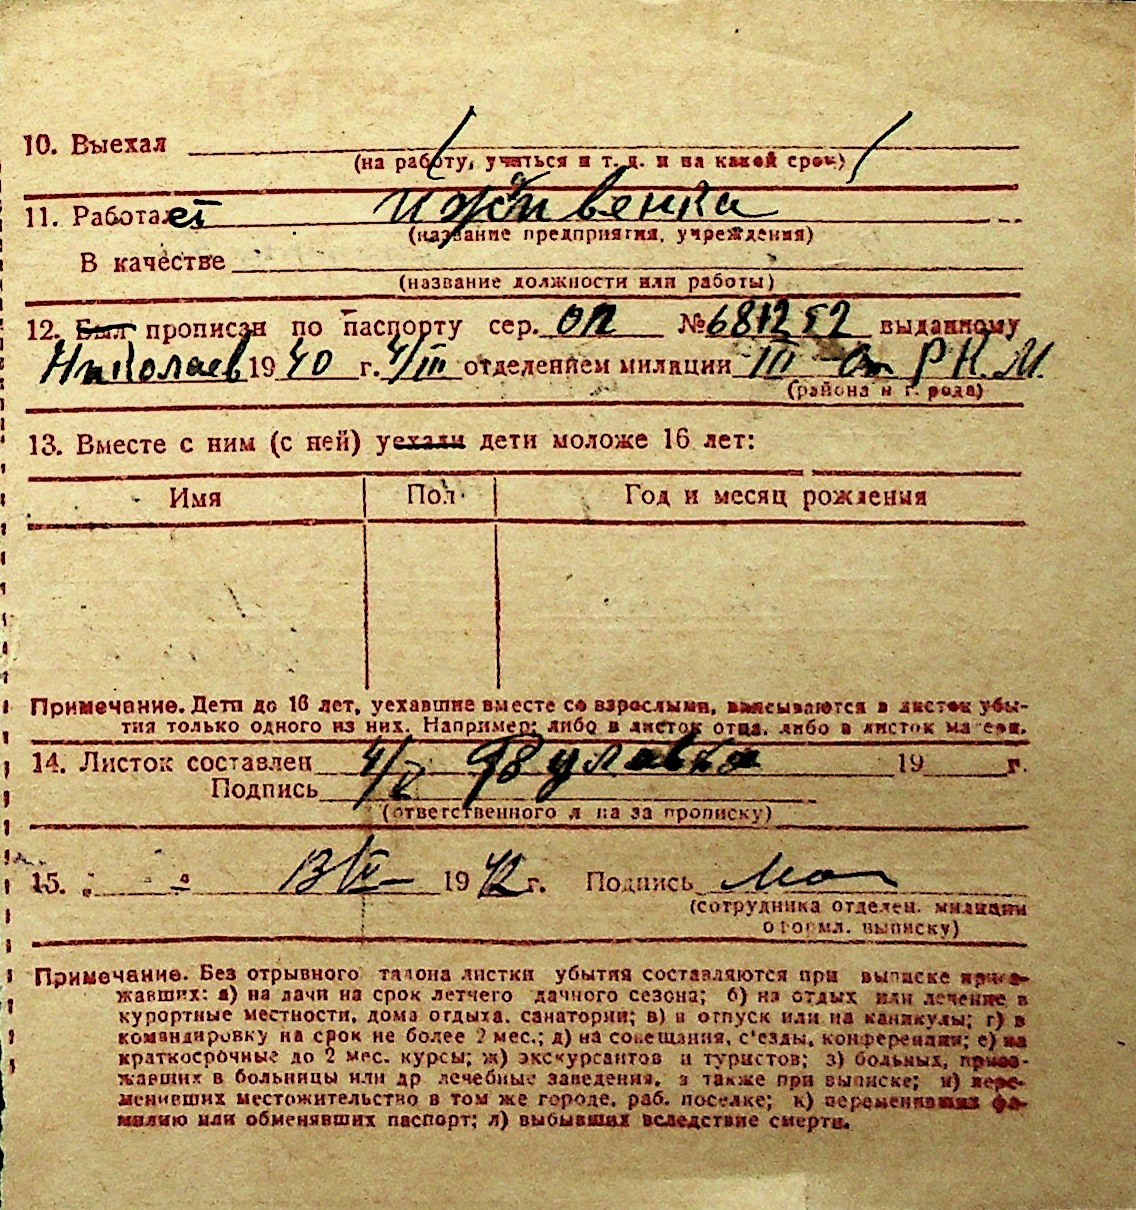 10. Выехал
(на работу, учиться и т. д. и на какой срок)
11. Работает иждивенка
(название предприятия, учреждения)
В качестве
(название должности или работы)
12. Был прописан по паспорту сер. ОП № 681292 выданному
Николаев 1940 г. 4/III отделением милиции III От Р К. М.
(района и города)
13. Вместе с ним (с ней) уехали дети моложе 16 лет:
Имя Пол Год и месяц рождения
Примечание. Дети до 16 лет, уехавшие вместе со взрослыми, вписываются в листок убы-
тия только одного из них. Например: либо в листок отца, либо в листок матери.
14. Листок составлен 19 г.
Подпись
(ответственного лица за прописку)
15. " " 1942 г. Подпись
(сотрудника отделен. милиции
оформл. выписку)
Примечание. Без отрывного талона листки убытия составляются при выписке приез-
жавших: а) на дачи на срок летнего дачного сезона; б) на отдых или лечение в
курортные местности, дома отдыха, санатории; в) в отпуск или на каникулы; г) в
командировку на срок не более 2 мес.; д) на совещания, с'езды, конференции; е) на
краткосрочные до 2 мес. курсы; ж) экскурсантов и туристов; з) больных, приез-
жавших в больницы или др лечебные заведения, а также при выписке; и) пере-
менивших местожительство в том же городе, раб. поселке; к) переменивших фа-
милию или обменявших паспорт; л) выбывших вследствие смерти.